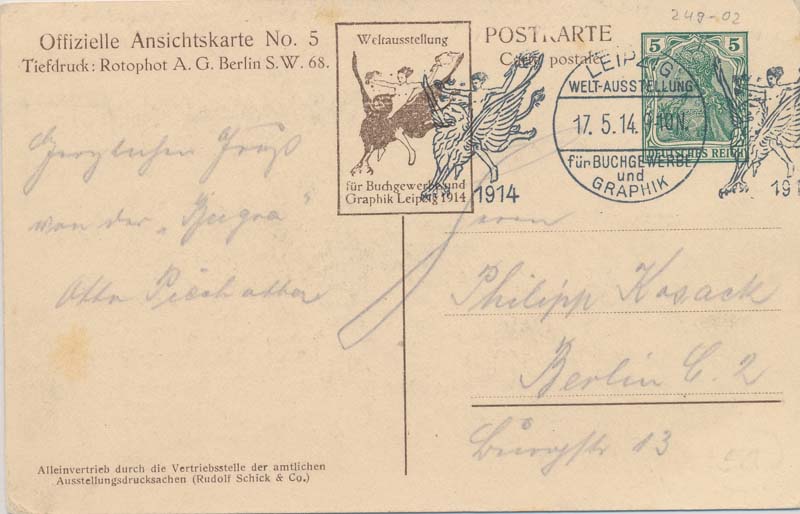 249-02
Offizielle Ansichtskarte No. 5
Tiefdruck: Rotophot A. G. Berlin S.W. 68.
Weltausstellung
für Buchgewerbe und
Graphik Leipzig 1914
POSTKARTE
Carte postale
1914
LEIPZIG
WELT-AUSSTELLUNG
17. 5. 14. 9-10N.
für BUCHGEWERBE
und
GRAPHIK
5 5
DEUTSCHES REICH
191
Herzlichen Gruß
von der „Bugra“
Otto
Herrn
Philipp Kosack
Berlin C. 2
Burgstr 13
Alleinvertrieb durch die Vertriebsstelle der amtlichen
Ausstellungsdrucksachen (Rudolf Schick & Co.)